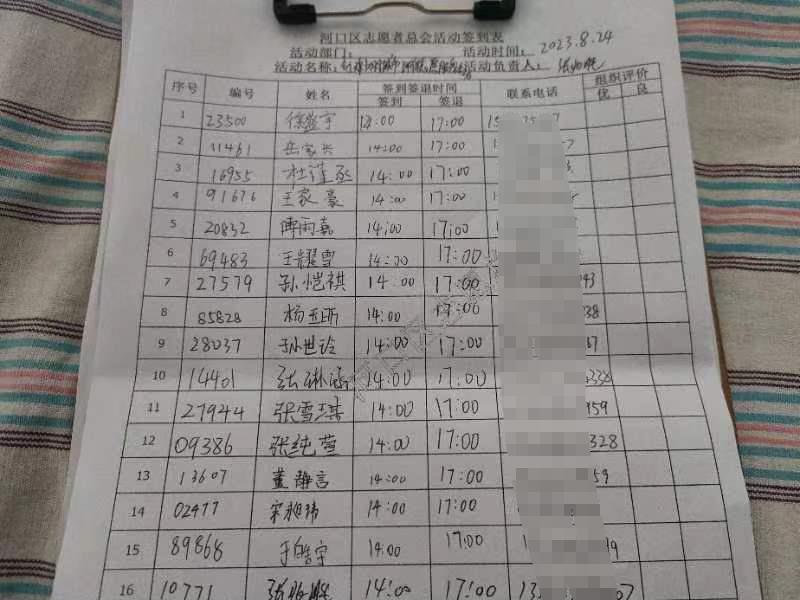 河口区志愿者总会活动签到表
活动部门: 活动时间: 2023.8.24
活动名称: 活动负责人:
序号 编号 姓名 签到签退时间 联系电话 组织评价
签到 签退 优 良
1 23500 徐 宇 14:00 17:00
2 11461 岳家兴 14:00 17:00
3 16955 杜 14:00 17:00
4 91676 王家豪 14:00 17:00
5 20832 陈雨嘉 14:00 17:00
6 69483 王耀雪 14:00 17:00
7 27579 孙恺祺 14:00 17:00
8 85828 杨玉 14:00 17:00
9 28037 孙世玲 14:00 17:00
10 14401 张琳涵 14:00 17:00 338
11 27944 张雪琪 14:00 17:00 959
12 09386 张纯萱 14:00 17:00 328
13 13607 董静言 14:00 17:00 59
14 02477 宋昶祎 14:00 17:00
15 89868 于皓宇 14:00 17:00
16 10771 张 14:00 17:00 07